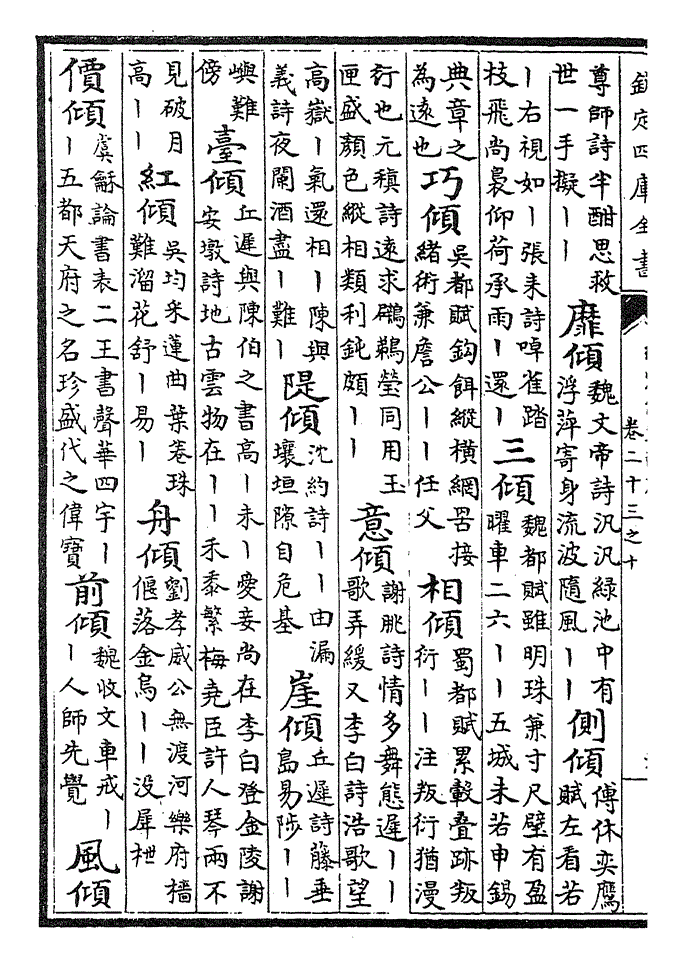 欽定四庫全書
卷二十三之十
尊師詩半酣思救
世一手擬丨丨
靡傾
魏文帝詩汎汎綠池中有
浮萍寄身流波隨風丨丨
側傾
傅休奕鷹
賦左看若
丨右視如丨張耒詩啅雀踏
枝飛尚裊仰荷承雨丨還丨
三傾
魏都賦雖明珠兼寸尺璧有盈
曜車二六丨丨五城未若申錫
典章之
為遠也
巧傾
吳都賦鈎餌縱橫網罟接
緒術兼詹公丨丨任父
相傾
蜀都賦累轂疊跡叛
衍丨丨注叛衍猶漫
衍也元稹詩遠求鸊鵜瑩同用玉
匣盛顏色縱相類利鈍頗丨丨
意傾
謝朓詩情多舞態遲丨丨
歌弄緩又李白詩浩歌望
高嶽丨氣還相丨陳與
義詩夜闌酒盡丨難丨
隄傾
沈約詩丨丨由漏
壤垣隙自危基
崖傾
丘遲詩藤垂
島易陟丨丨
嶼難
傍
臺傾
丘遲與陳伯之書高丨未丨愛妾尚在李白登金陵謝
安墩詩地古雲物在丨丨禾黍繁梅堯臣許人琴兩不
見破月
高丨丨
紅傾
吳均采蓮曲葉卷珠
難溜花舒丨易丨
舟傾
劉孝威公無渡河樂府檣
偃落金烏丨丨没犀枻
價傾
虞龢論書表二王書聲華四宇丨
丨五都天府之名珍盛代之偉寶
前傾
魏收文車戒丨
丨人師先覺
風傾